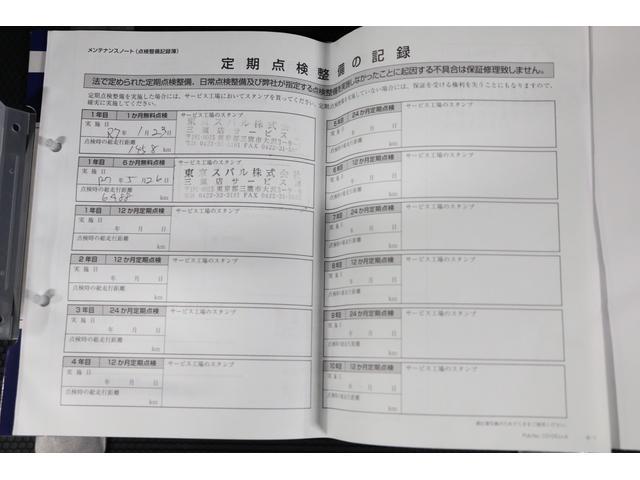 メンテナンスノート（点検整備記録簿）
定期点検整備の記録
法で定められた定期点検整備、日常点検整備及び弊社が指定する点検整備を実施しなかったことに起因する不具合は保証修理致しません。
定期点検整備を実施した場合には、サービス工場においてスタンプを貰ってください。定期点検整備を実施していない場合には、保証を受ける権利を失うことにもなりますので、
確実に実施してください。
1年目 1か月無料点検 サービス工場のスタンプ
実施日 R7年 1月23日
点検時の総走行距離
1458 km
東京スバル株式会
三鷹店サービス
1年目 6か月無料点検 サービス工場のスタンプ
実施日 R7年 5月26日
点検時の総走行距離
6488 km
東京スバル株式会社
三鷹店サービス課
1年目 12か月定期点検 サービス工場のスタンプ
実施日 年 月 日
点検時の総走行距離
km
2年目 12か月定期点検 サービス工場のスタンプ
実施日 年 月 日
点検時の総走行距離
km
3年目 24か月定期点検 サービス工場のスタンプ
実施日 年 月 日
点検時の総走行距離
km
4年目 12か月定期点検 サービス工場のスタンプ
実施日 年 月 日
点検時の総走行距離
km
5年目 24か月定期点検 サービス工場のスタンプ
実施日 年 月 日
点検時の総走行距離
km
6年目 12か月定期点検 サービス工場のスタンプ
実施日 年 月 日
点検時の総走行距離
km
7年目 24か月定期点検 サービス工場のスタンプ
実施日 年 月 日
点検時の総走行距離
km
8年目 12か月定期点検 サービス工場のスタンプ
実施日 年 月 日
点検時の総走行距離
km
9年目 24か月定期点検 サービス工場のスタンプ
実施日 年 月 日
点検時の総走行距離
km
10年目 12か月定期点検 サービス工場のスタンプ
実施日 年 月 日
点検時の総走行距離
km